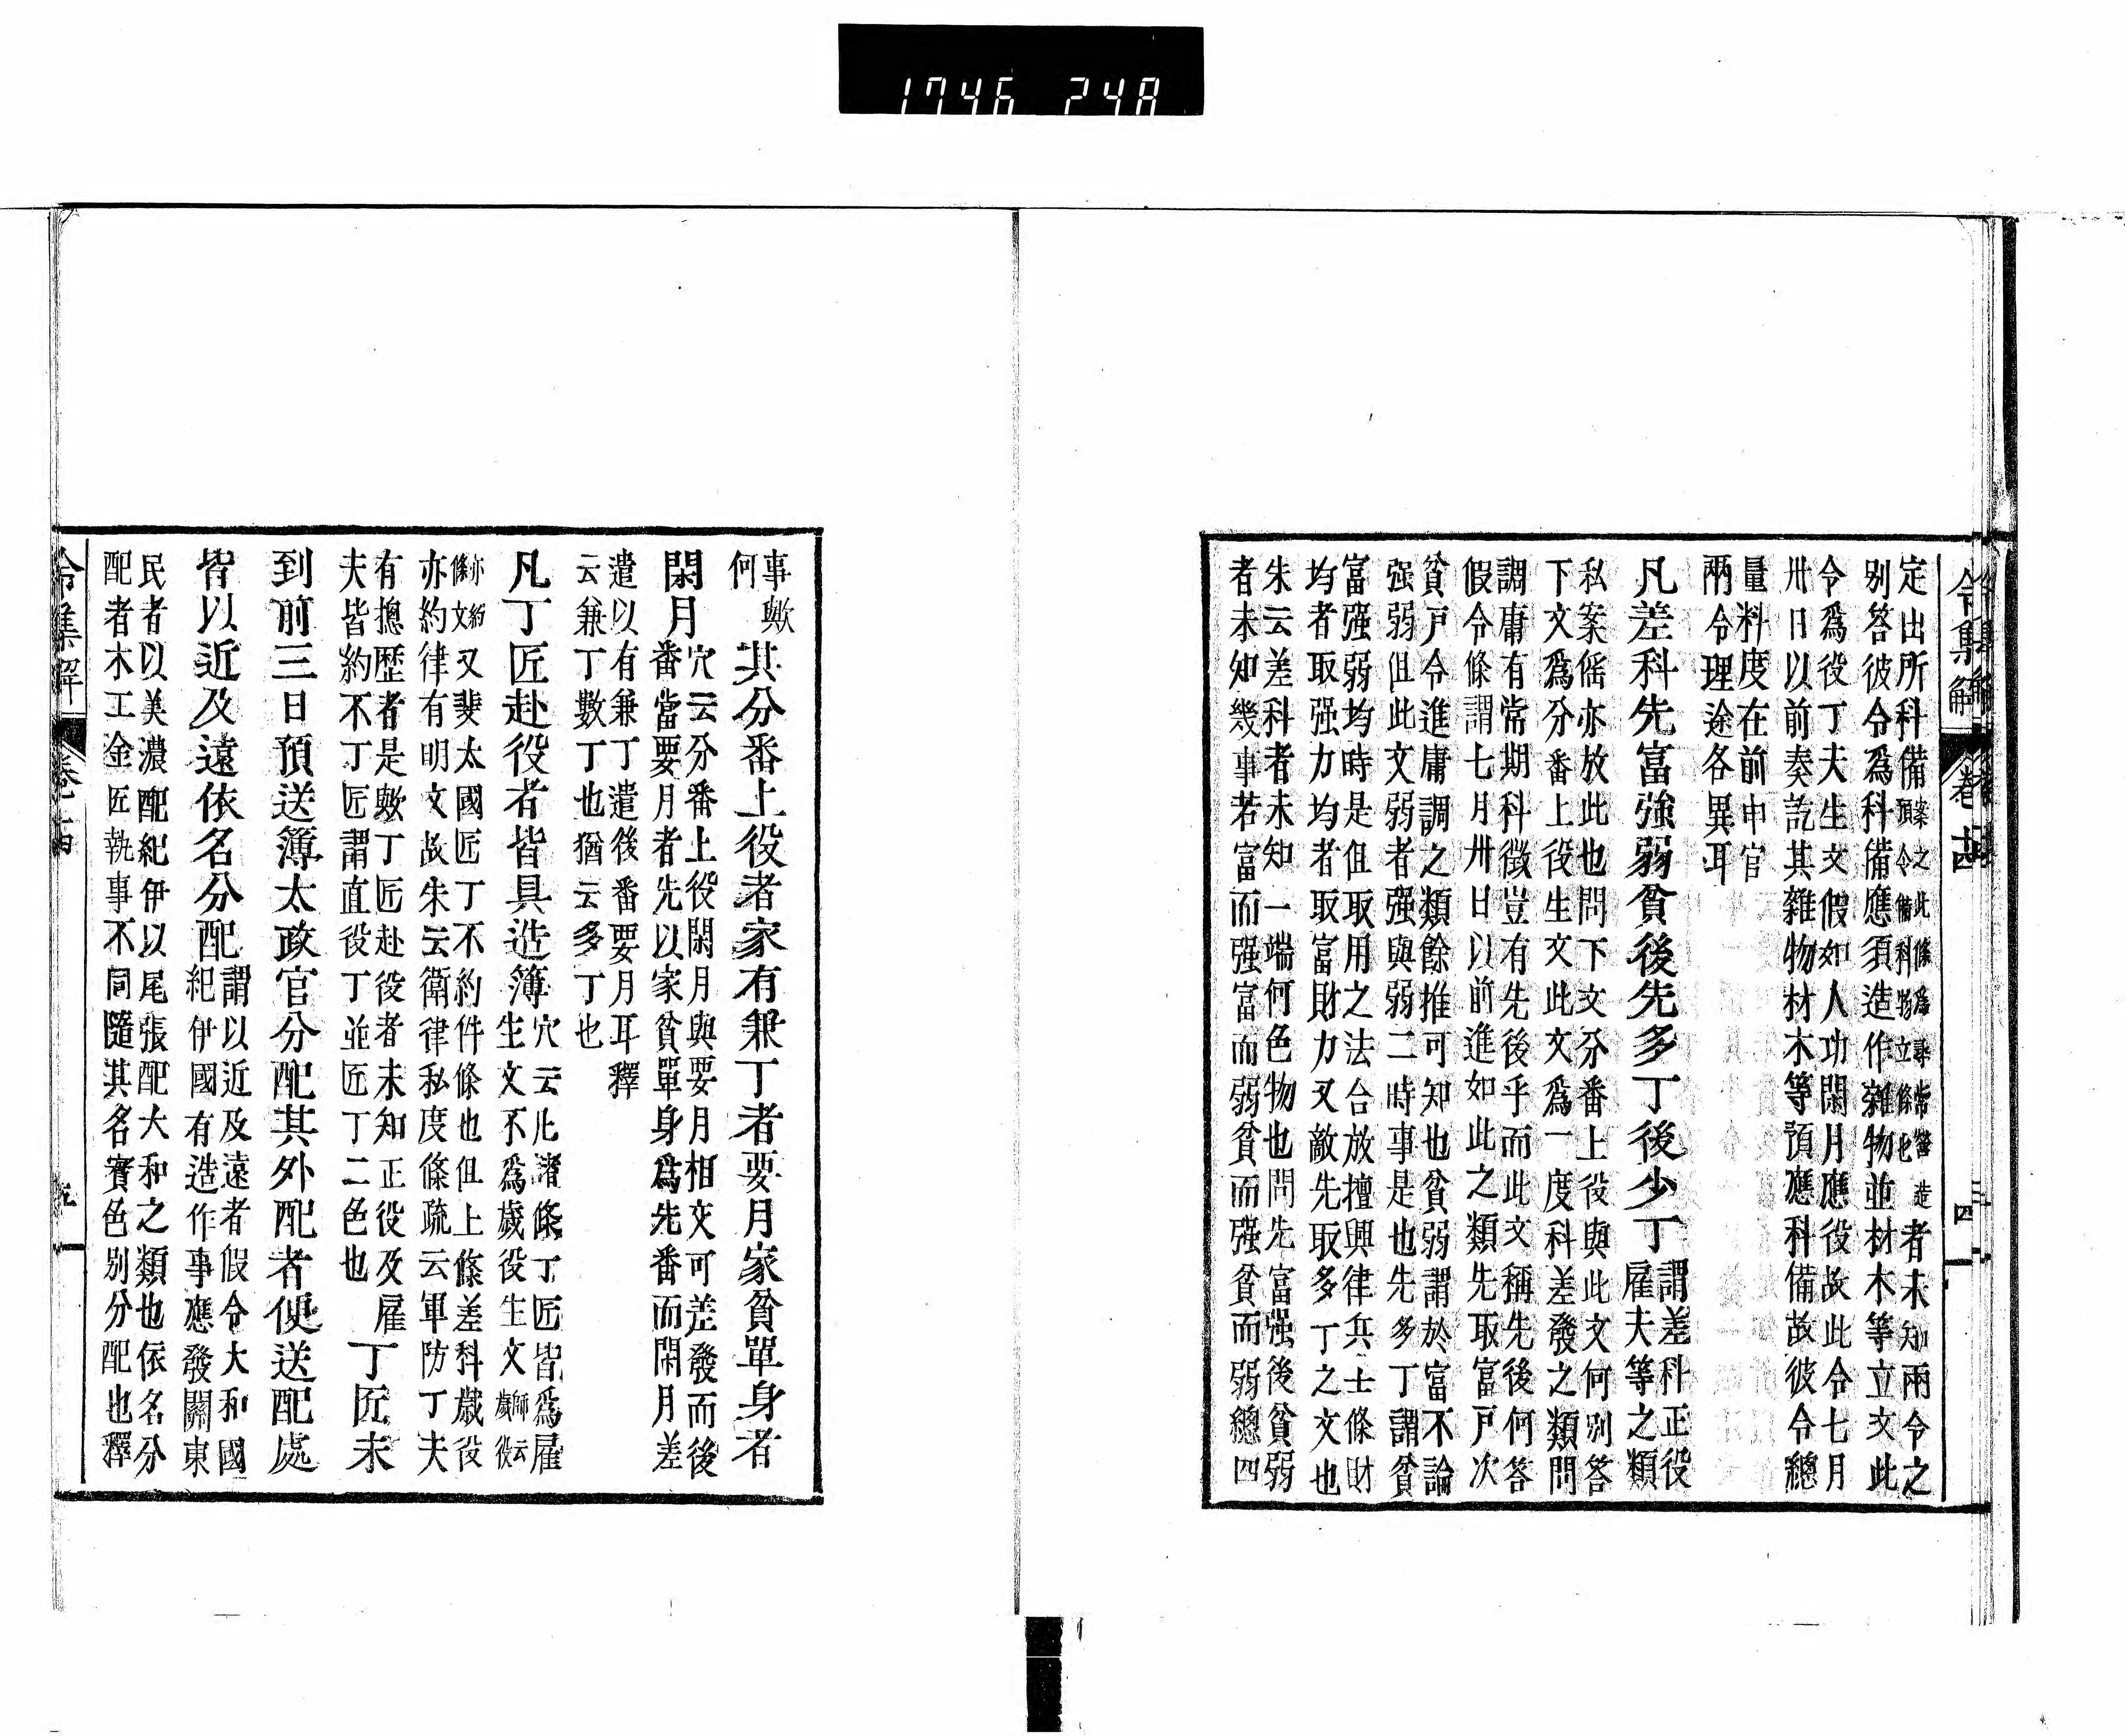 令集解 卷十四 四
定出所科備案之此條爲尋常營造
預令備科物立條也者未知兩令之
別答彼令爲科備應須造作雜物並材木等立文此
令爲役丁夫生文假如人功閑月應役故此令七月
卅日以前奏訖其雜物材木等預應科備故彼令總
量科度在前申官
兩令理途各異耳
凡差科先富強弱貧後先多丁後少丁
謂差科正役
雇夫等之類
私案徭亦放此也問下文分番上役與此文何別答
下文爲分番上役生文此文爲一度科差發之類問
調庸有常期科徵豈有先後乎而此文稱先後何答
假令條謂七月卅日以前進如此之類先取富戸次
貧戸令進庸調之類餘推可知也貧弱謂於富不論
强弱但此文弱者强與弱二時事是也先多丁謂貧
富强弱均時是但取用之法合放擅興律兵士條財
均者取强力力均者取富財力又敵先取多丁之文也
朱云差科者未知一端何色物也問先富强後貧弱
者未知幾事若富而强富而弱貧而强貧而弱總四
事歟
何
其分番上役者家有兼丁者要月家貧單身者
閑月
穴云分番上役閑月與要月相交可差發而後
番當要月者先以家貧單身爲先番而閑月差
遣以有兼丁遣後番要月耳釋
云兼丁數丁也猶云多丁也
凡丁匠赴役者皆具造簿
穴云此諸條丁匠皆爲雇
生文不爲歲役生文師云
歲役
亦約
條文又斐太國匠丁不約件條也但上條差科歲役
亦約律有明文故朱云衛律私度條疏云軍防丁夫
有摠歷者是歟丁匠赴役者未知正役及雇
夫皆約不丁匠謂直役丁並匠丁二色也
丁匠未
到前三日預送簿太政官分配其外配者便送配處
皆以近及遠依名分配
謂以近及遠者假令大和國
紀伊國有造作事應發關東
民者以美濃配紀伊以尾張配大和之類也依名分
配者木工金匠執事不同隨其名實色別分配也釋
令集解 卷十四 五
1746 248